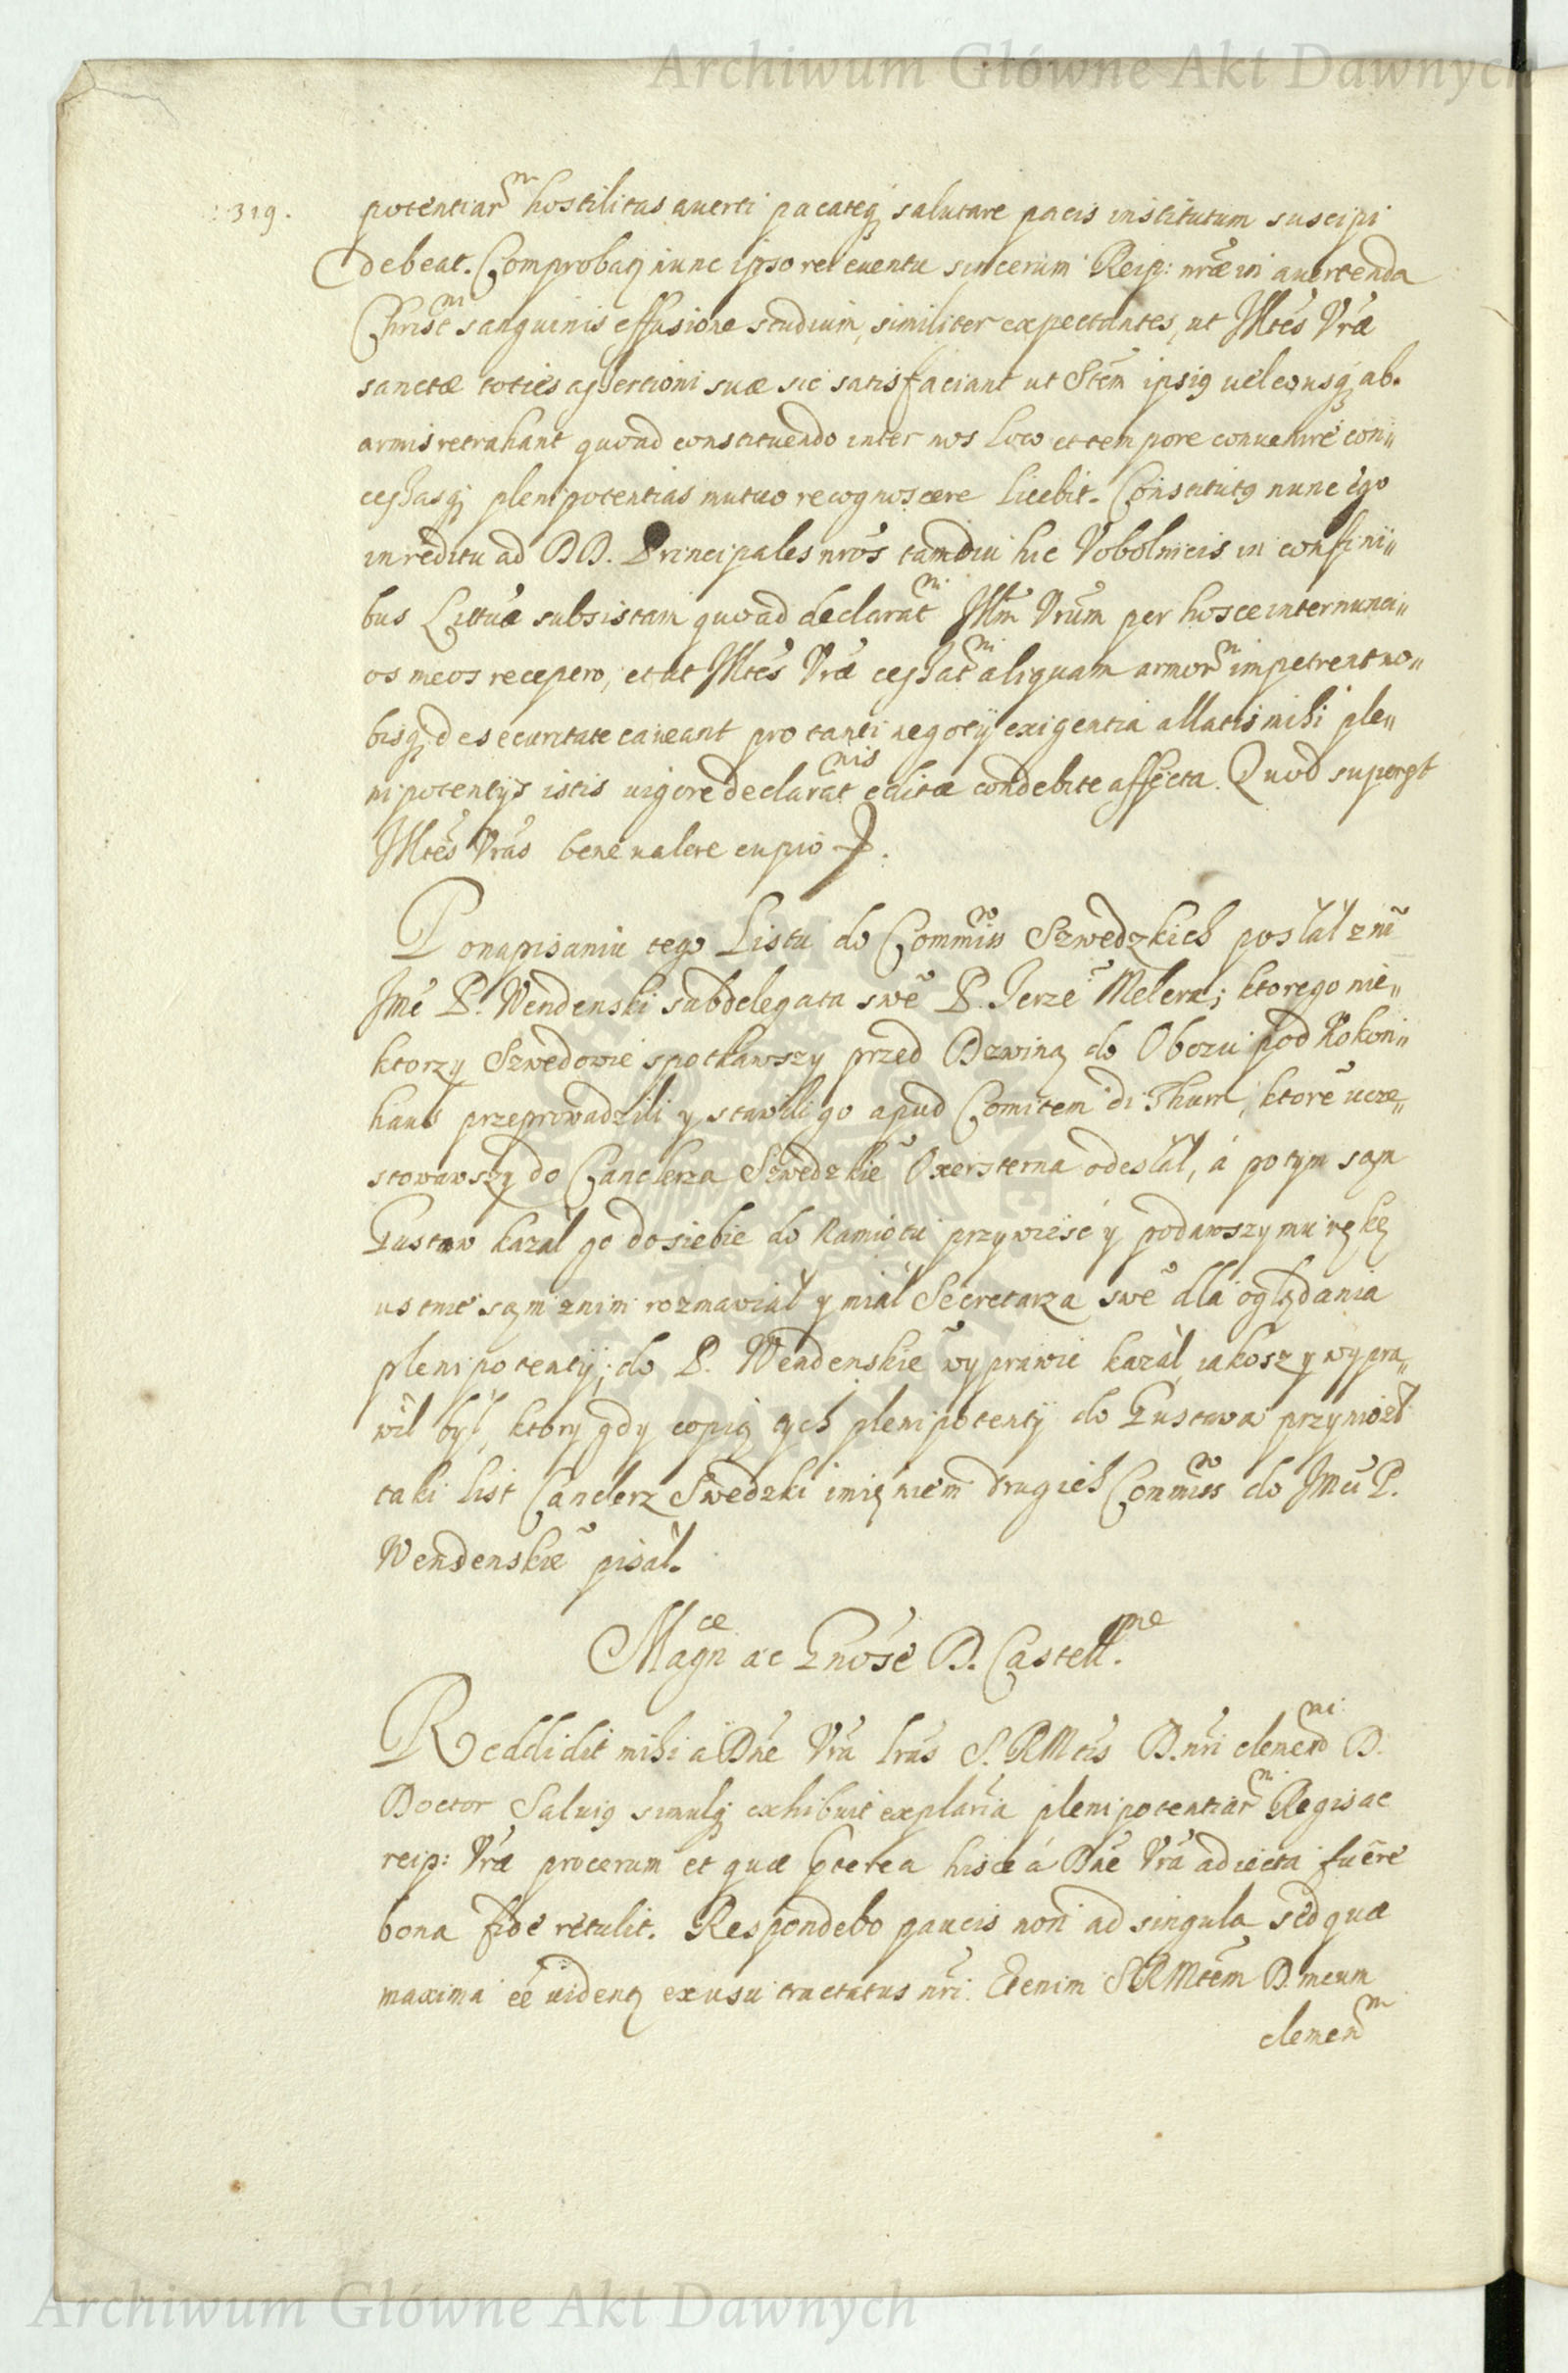 Archiwum Główne Akt Dawnych
319.
potentiar͠m hostilitas auerti pacateq; salutare pacis institutum suscipi
debeat. Comprobaq; nunc ipso rei euentu sincerum Reip: nrae in auertenda
Christ͠m sanguinis effusione studium, similiter expectantes, ut Mtes Vrae
sanctae toties assertioni suae sic satisfaciant ut Stem ipsig uel eousq; ab.
armis retrahant quoad constituendo inter nos loco et tempore conuenire con„
cessasq; plenipotentias mutuo recognoscere licebit. Constitutg nunc ego
in reditu ad DD. Principales nros tamdiu hic Vobolnicis in confini„
bus Littuae subsistam quoad declarat͠m Mm Vrum per hosce internunci„
os meos recepero, et ut Mtes Vrae cessat͠m aliquam armor͠m impetrent no„
bisq; de securitate caueant pro tanti negotÿ exigentia allatis mihi ple„
nipotentÿs istis uigore declarat͠nis editae condebite affecta. Quod superest
Mtes Vras bene ualere cupio.
Po napisaniu tego Listu do Commiss͠o Szwedzkich posłał z nĩ
Jme P. Wendenski subdelegata swe͠ P. Jerze͠ Melera; ktorego nie„
ktorzy Szwedowie spotkawszy przed Dzwiną do Obozu pod Kokon„
haus przeprowadzili y stawili go apud Comitem di Thurn, ktore͠ ucze„
stowawszy do Canclerza Szwedzkie͠ Oxersterna odesłał, á potym sąm
Gustaw kazał go do siebie do Namiotu przywieść y podawszy mu rękę
ustnie sąm z nim rozmawiał y miał Secretarza swe͠ dla oglądania
plenipotentij; do P. Wendenskie͠ wyprawic kazał, iakosz y wypra„
wił był, ktory gdy copią tych plenipotentÿ do Gustawa przyniosł
taki list Canclerz Swedzki imięniem drugich Commiss͠o do Jmci P.
Wendenskie͠ pisał.
Magn͠ce ac Gnose D. Castell͠ne.
Reddidit mihi a Dne Vra lras S. RMtis D. nri clemend͠mi D.
Doctor Saluig simulq; exhibuit explaria plenipotentiar͠m Regis ac
reip: Vrae procerum et quae pterea hisce á Dne Vra adiecta fuere
bona fide retulit. Respondebo paucis non ad singula sed quae
maxima ee uidentq; ex usu tractatus nri. Etenim SRMtem D. meum
clemend͠m
Archiwum Główne Akt Dawnych